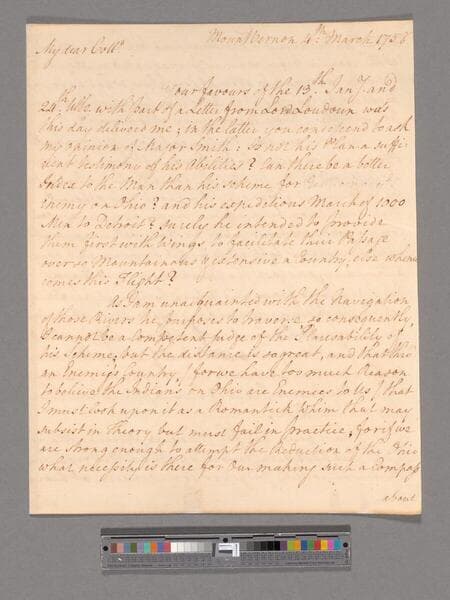 Mount Vernon 4th March 1758
My dear Collo.
Your favours of the 13th Jany and
24th Ulto. with part of a Letter from Lord Loudoun was
this day deliverd me; in the latter you condescend to ask
my opinion of Major Smith: is not his Plan a suffi-
cient testimony of his Abilities? Can there be a better
Index to the Man than his scheme for
Enemy on Ohio? and his expeditious March of 1000
Men to Detroit? surely he intended to provide
them first with Wings to facilitate their Passage
over so Mountainous & extensive a Country, else whence
comes this Flight?
As I am unacquainted with the Navigation
of those Rivers he proposes to traverse, so consequently,
I cannot be a competent judge of the Plausability of
his Scheme; but the distance is so great, and that thro
an Enemies Country (for we have too much Reason
to believe the Indian's on Ohio are Enemies to Us) that
I must look upon it as a Romantick Whim that may
subsist in Theory but must fail in practice, for if we
are strong enough to attempt the Reduction of the Ohio
what necessity is there for our making such a Compass
about